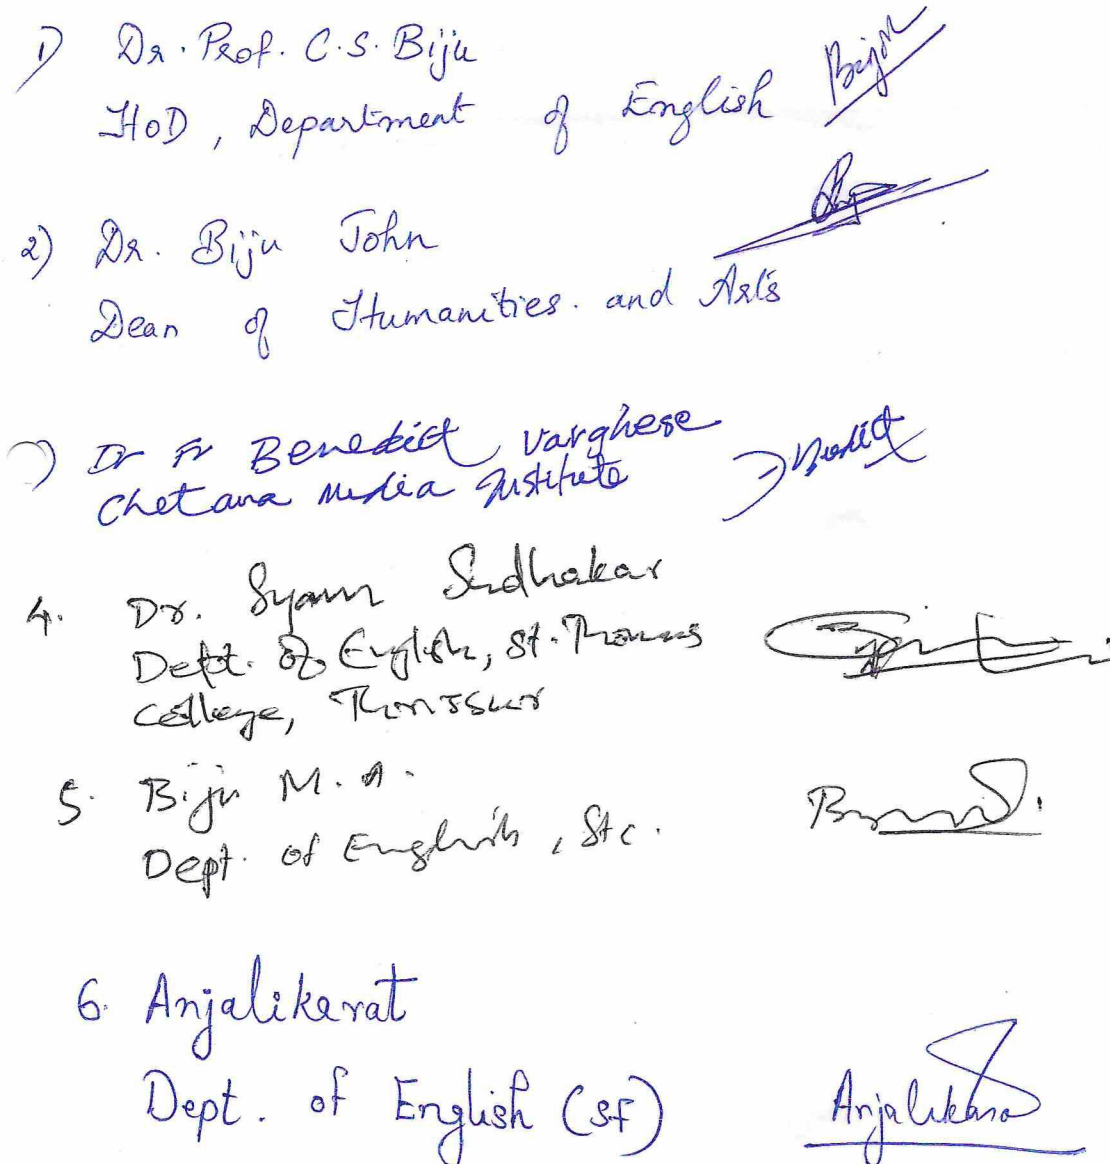 1) Dr. Prof. C.S. Biju
HoD, Department of English Biju
2) Dr. Biju John
Dean of Humanities. and Arts
) Dr Fr Benedict Varghese
Chetana Media Institute Benedict
4. Dr. Syam Sudhakar
Dept. of English, St. Thomas
College, Thrissur
5. Biju M.A.
Dept. of English, StC.
6. Anjalikarat
Dept. of English (SF) Anjalikara